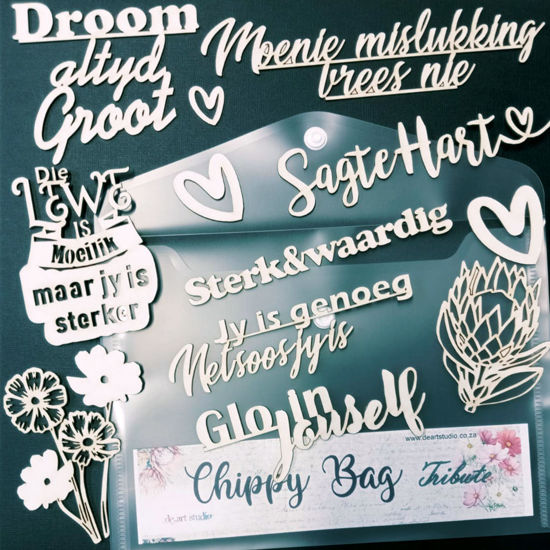 Droom
altyd
Groot
Moenie mislukking
vrees nie
Sagte Hart
Die
LEWE
IS
Moeilik
maar jy is
sterker
Sterk&waardig
Jy is genoeg
Net soos jy is
Glo in
Jouself
www.deartstudio.co.za
Chippy Bag Tribute
de.art studio